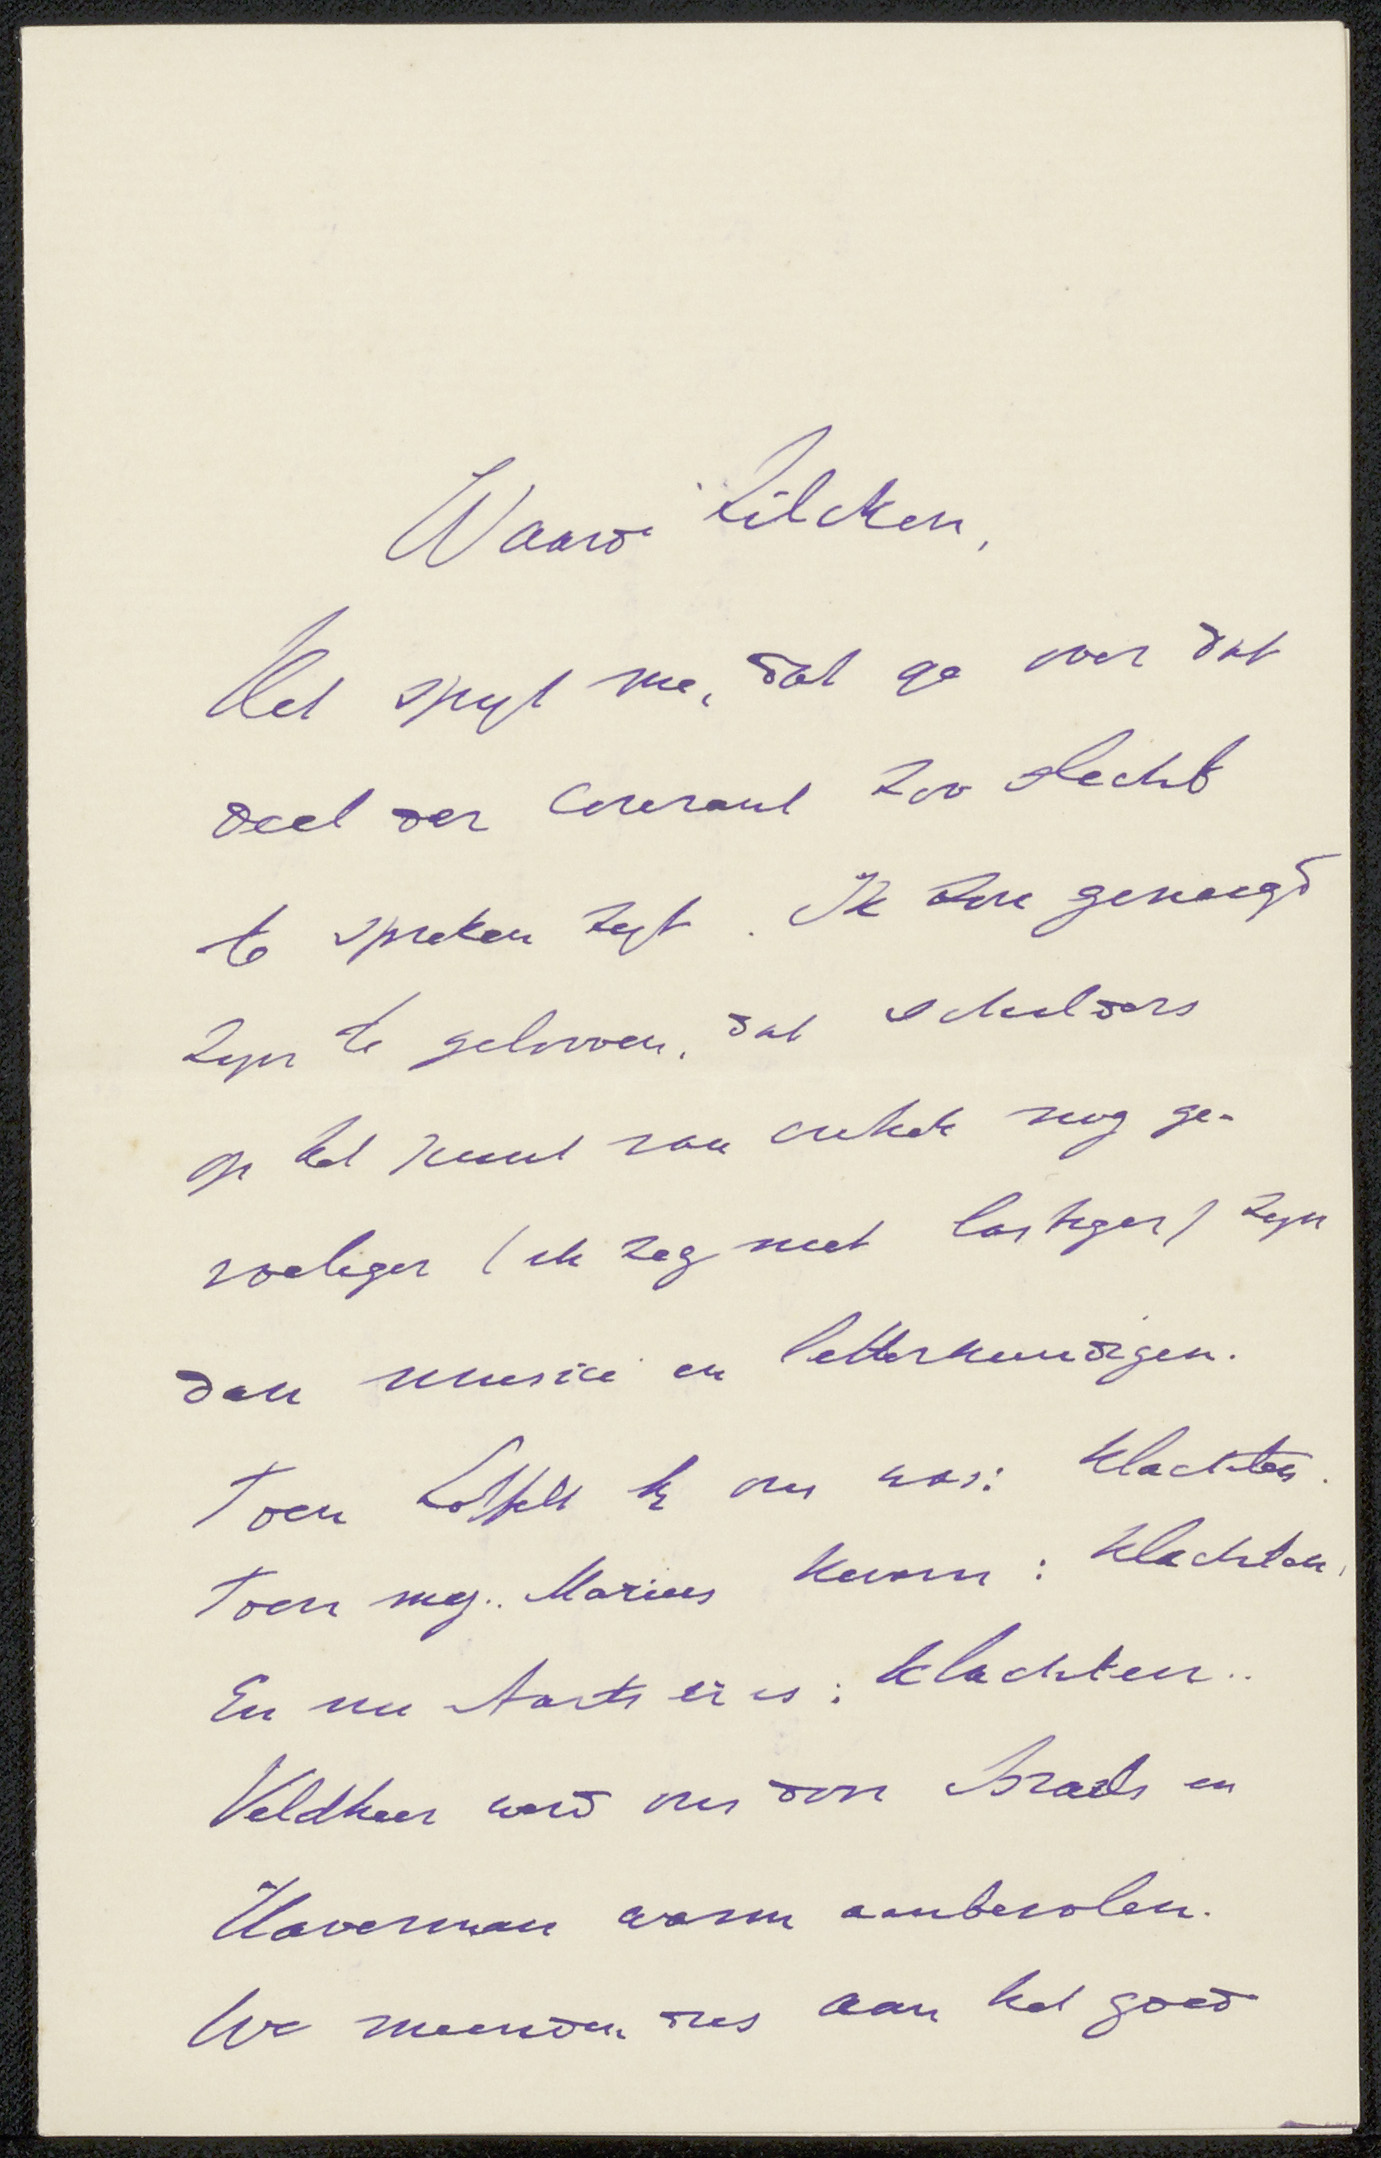 Waarde Zilcken,
Het spyt me, dat ge over dat
deel der Courant zoo slecht
te spreken zyt. Ik zou geneigd
zyn te gelooven, dat schilders
op het punt van critiek nog ge-
voeliger (ik zeg niet lastiger) zyn
dan musici en letterkundigen.
Toen Loffelt by ons was: klachten.
Toen mej. Marius kwam: klachten.
En nu Aarts er is: klachten..
Veldheer werd ons door Israels en
Haverman warm aanbevolen.
We meenden dus aan het goed